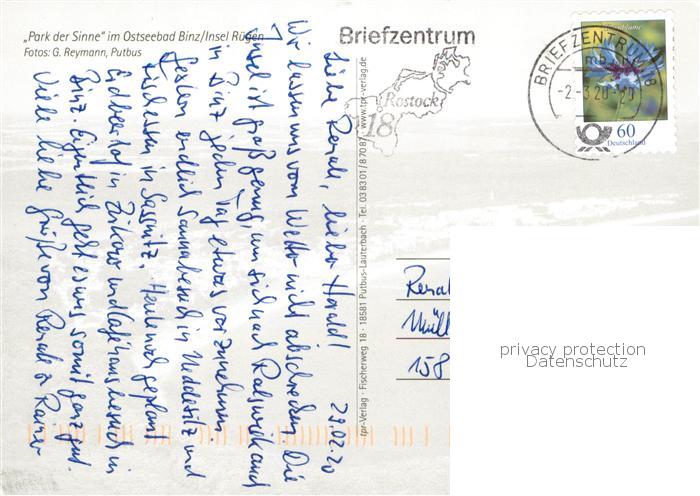 „Park der Sinne“ im Ostseebad Binz/Insel Rügen
Fotos: G. Reymann, Putbus
Briefzentrum
Rostock
18
BRIEFZENTRUM 18
mb
-2.-3.20-
60
Deutschland
29.2.20
Liebe Renate, lieber Harald!
Wir lassen uns vom Wetter nicht abschrecken. Die
Insel ist groß genug, um sich auch Ralswiek und
in Binz jeden Tag etwas vorzunehmen.
Gestern endlich Sonnabend in Neddesitz und
Fischessen in Sassnitz. Heute noch geplant
Erdbeerhof in Zirkow und Caféhausbesuch in
Binz. Eigentlich geht es uns somit ganz gut.
Viele liebe Grüße von Renate & Rainer
tpr-Verlag · Fischerweg 18 · 18581 Putbus-Lauterbach · Tel. 03 83 01 / 8 70 87 · www.tpr-verlag.de
Renat
Müll
158
privacy protection
Datenschutz